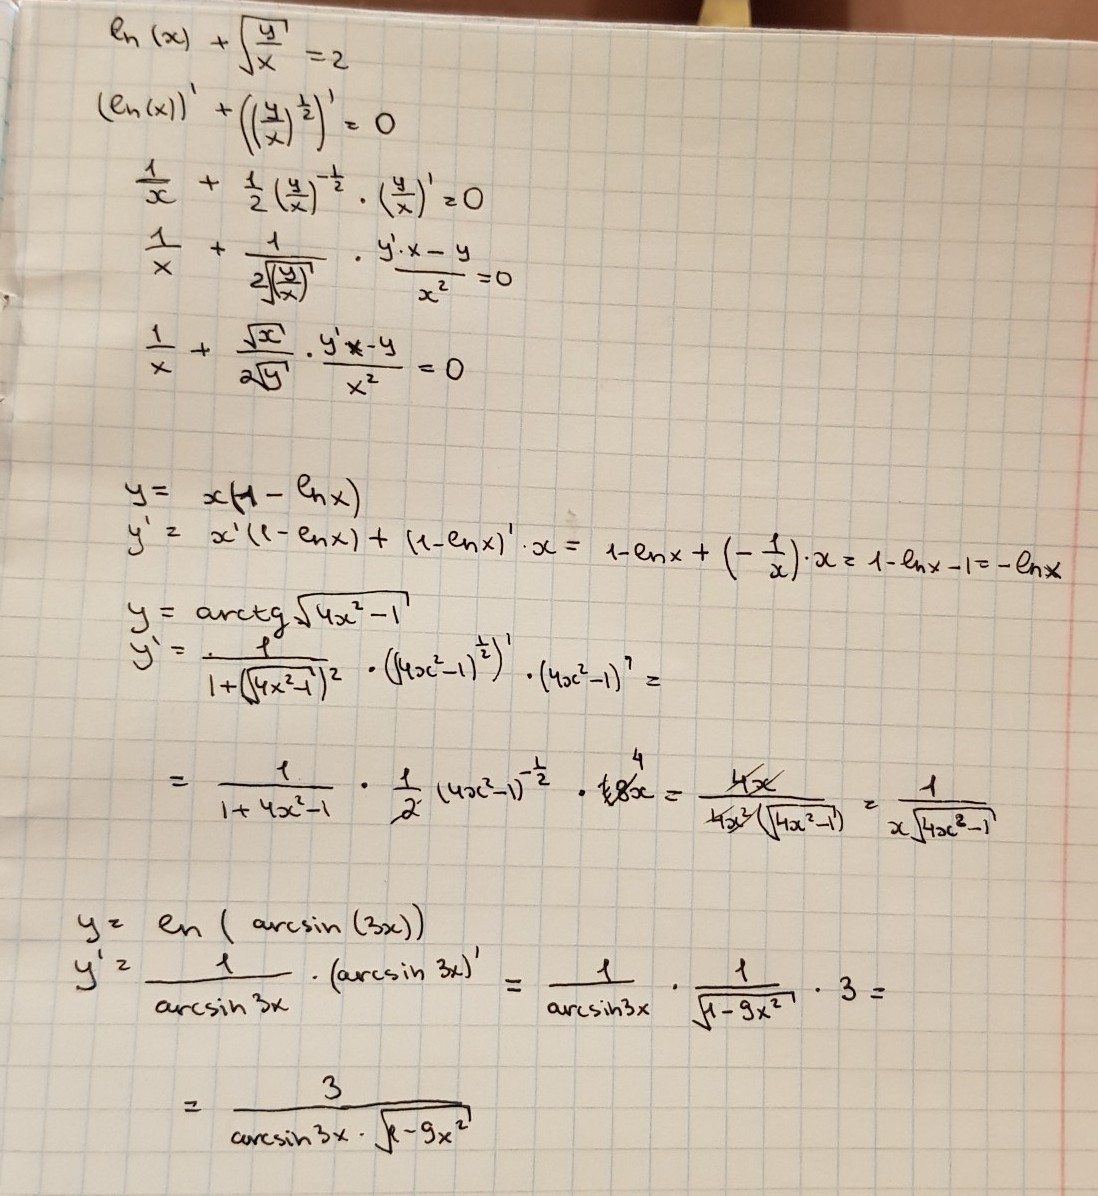 ln(x) + √(y/x) = 2
(ln(x))' + ((y/x)^(1/2))' = 0
1/x + 1/2 (y/x)^(-1/2) · (y/x)' = 0
1/x + 1/(2√(y/x)) · (y'·x - y)/x² = 0
1/x + √x/(2√y) · (y'x - y)/x² = 0
y = x(1 - lnx)
y' = x'(1-lnx) + (1-lnx)'·x = 1-lnx + (-1/x)·x = 1-lnx-1 = -lnx
y = arctg√(4x²-1)
y' = 1/(1+(√(4x²-1))²) · ((4x²-1)^(1/2))' · (4x²-1)' =
= 1/(1+4x²-1) · 1/2 (4x²-1)^(-1/2) · 8x 4 = 4x/(4x²(√(4x²-1))) = 1/(x√(4x²-1))
y = ln(arcsin(3x))
y' = 1/(arcsin3x) · (arcsin 3x)' = 1/(arcsin3x) · 1/√(1-9x²) · 3 =
= 3/(arcsin3x · √(1-9x²))